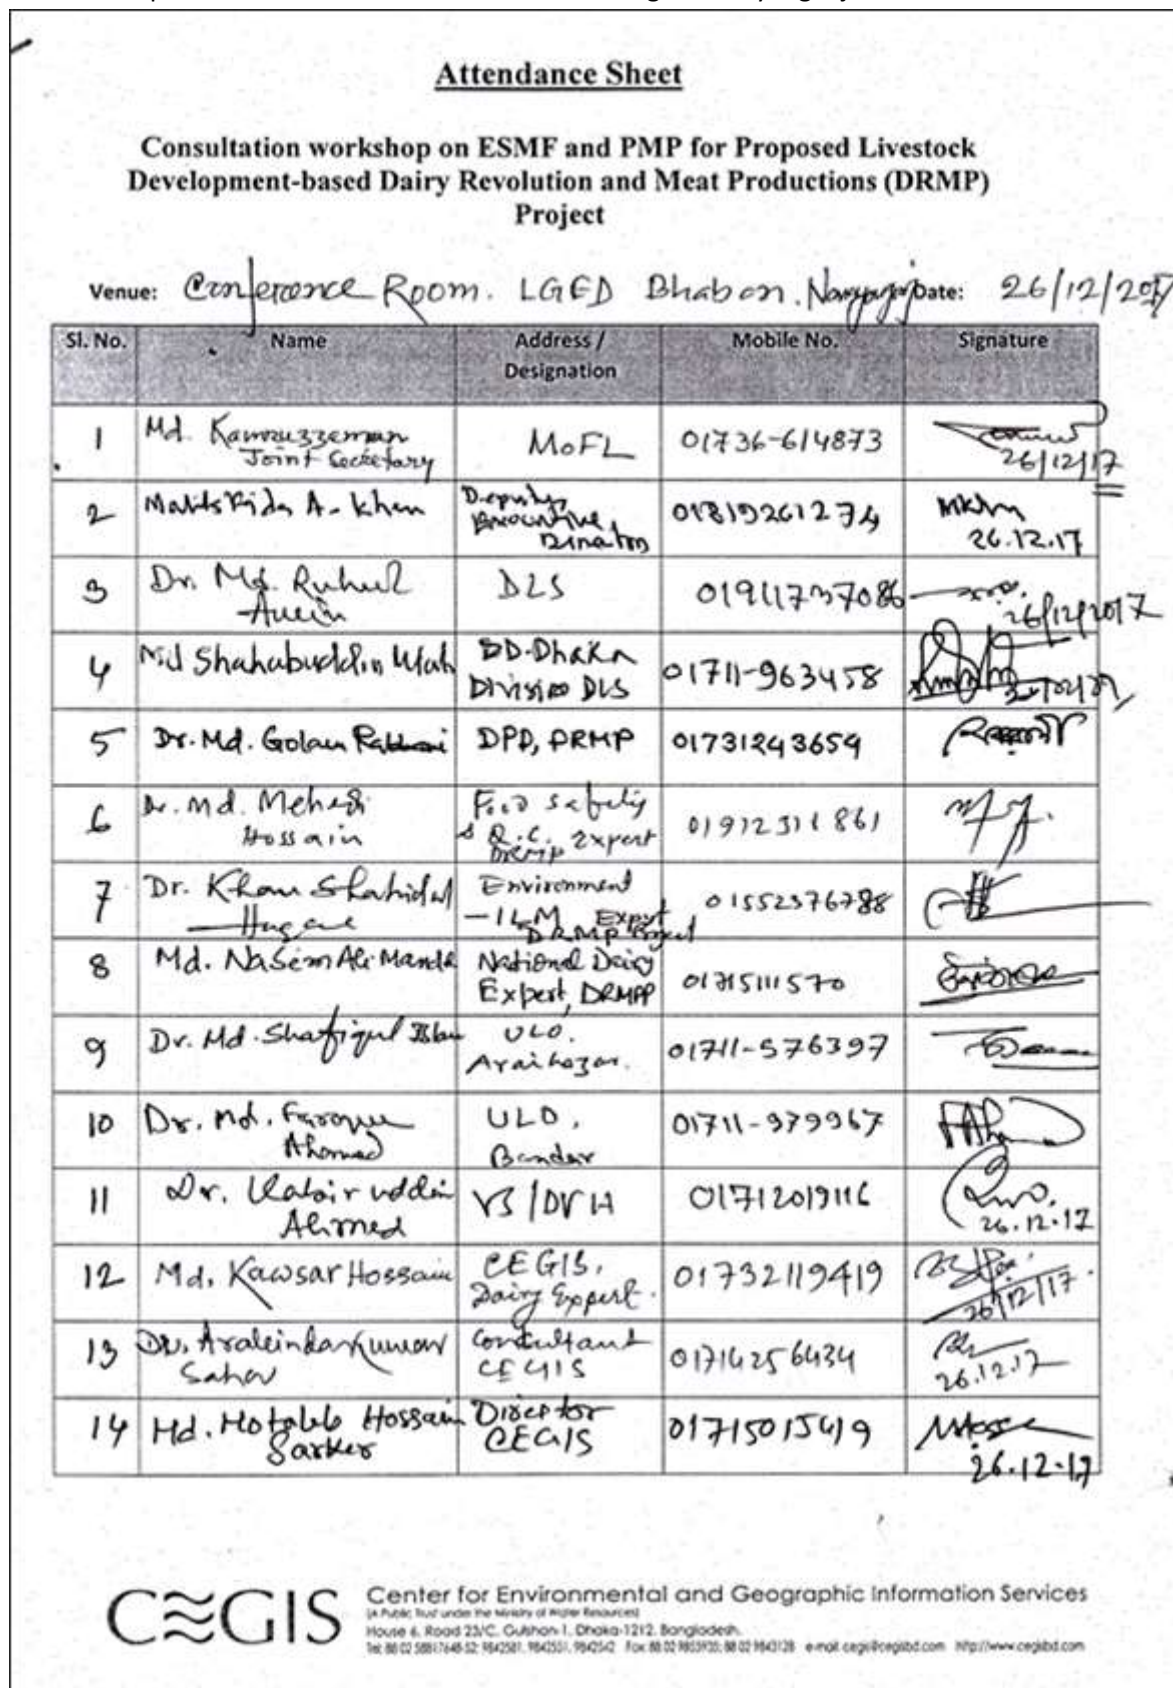 Attendance Sheet
Consultation workshop on ESMF and PMP for Proposed Livestock
Development-based Dairy Revolution and Meat Productions (DRMP)
Project
Venue: Conference Room. LGED Bhabon. Date: 26/12/2017
Sl. No. Name Address / Designation Mobile No. Signature
1 Md. Kamruzzaman Joint Secretary MoFL 01736-614873 26/12/17
2 A. Khan Deputy Executive Director 01819261274 26.12.17
3 Dr. Md. Ruhul Amin DLS 01911737086 26/12/2017
4 Md Shahabuddin DD-Dhaka Division DLS 01711-963458
5 Dr. Md. Golam Rabbani DPD, DRMP 01731243659
6 Dr. Md. Mehedi Hossain Food safety & Q.C. Expert DRMP 01912311861
7 Dr. Khan Shahidul Huque Environment - ILM Expert DRMP Project 01552376788
8 Md. Nasem Ali Manda National Dairy Expert, DRMPP 01715111570
9 Dr. Md. Shafiqul Islam ULO. Araihazar. 01711-576397
10 Dr. Md. Faroque Ahamed ULO, Bandar 01711-979967
11 Dr. Kabir uddin Ahmed VS/DVH 01712019116 26.12.17
12 Md. Kawsar Hossain CEGIS, Dairy Expert. 01732119419 26/12/17
13 Dr. Kumar Saha Consultant CEGIS 01714256434 26.12.17
14 Md. Motaleb Hossain Sarker Director CEGIS 01715015419 26.12.17
CEGIS
Center for Environmental and Geographic Information Services
(A Public Trust under the Ministry of Water Resources)
House 6, Road 23/C, Gulshan-1, Dhaka-1212, Bangladesh.
Tel: 88 02 58817648-52; 9842581, 9842551, 9842542 Fax: 88 02 9855935; 88 02 9843128 e-mail: cegis@cegisbd.com http://www.cegisbd.com